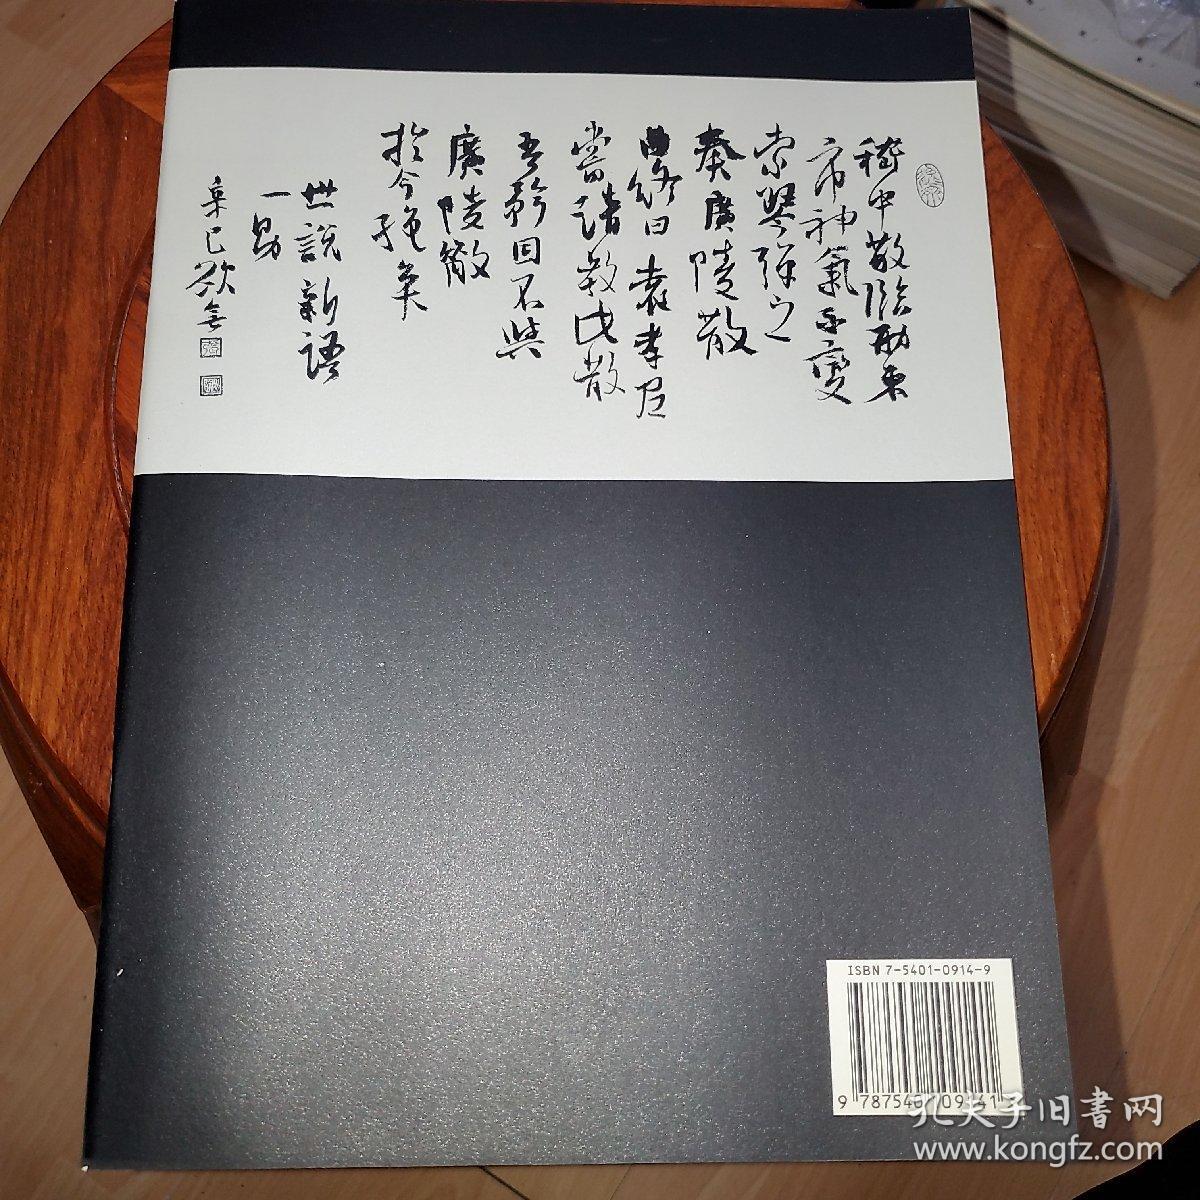 嵇中散臨刑東
市神氣不變
索琴彈之
奏廣陵散
曲終曰袁孝尼
嘗請學此散
吾靳固不與
廣陵散
於今絕矣
世說新語
一則
辛巳
ISBN 7-5401-0914-9
9 787540 109141
孔夫子旧书网
www.kongfz.com